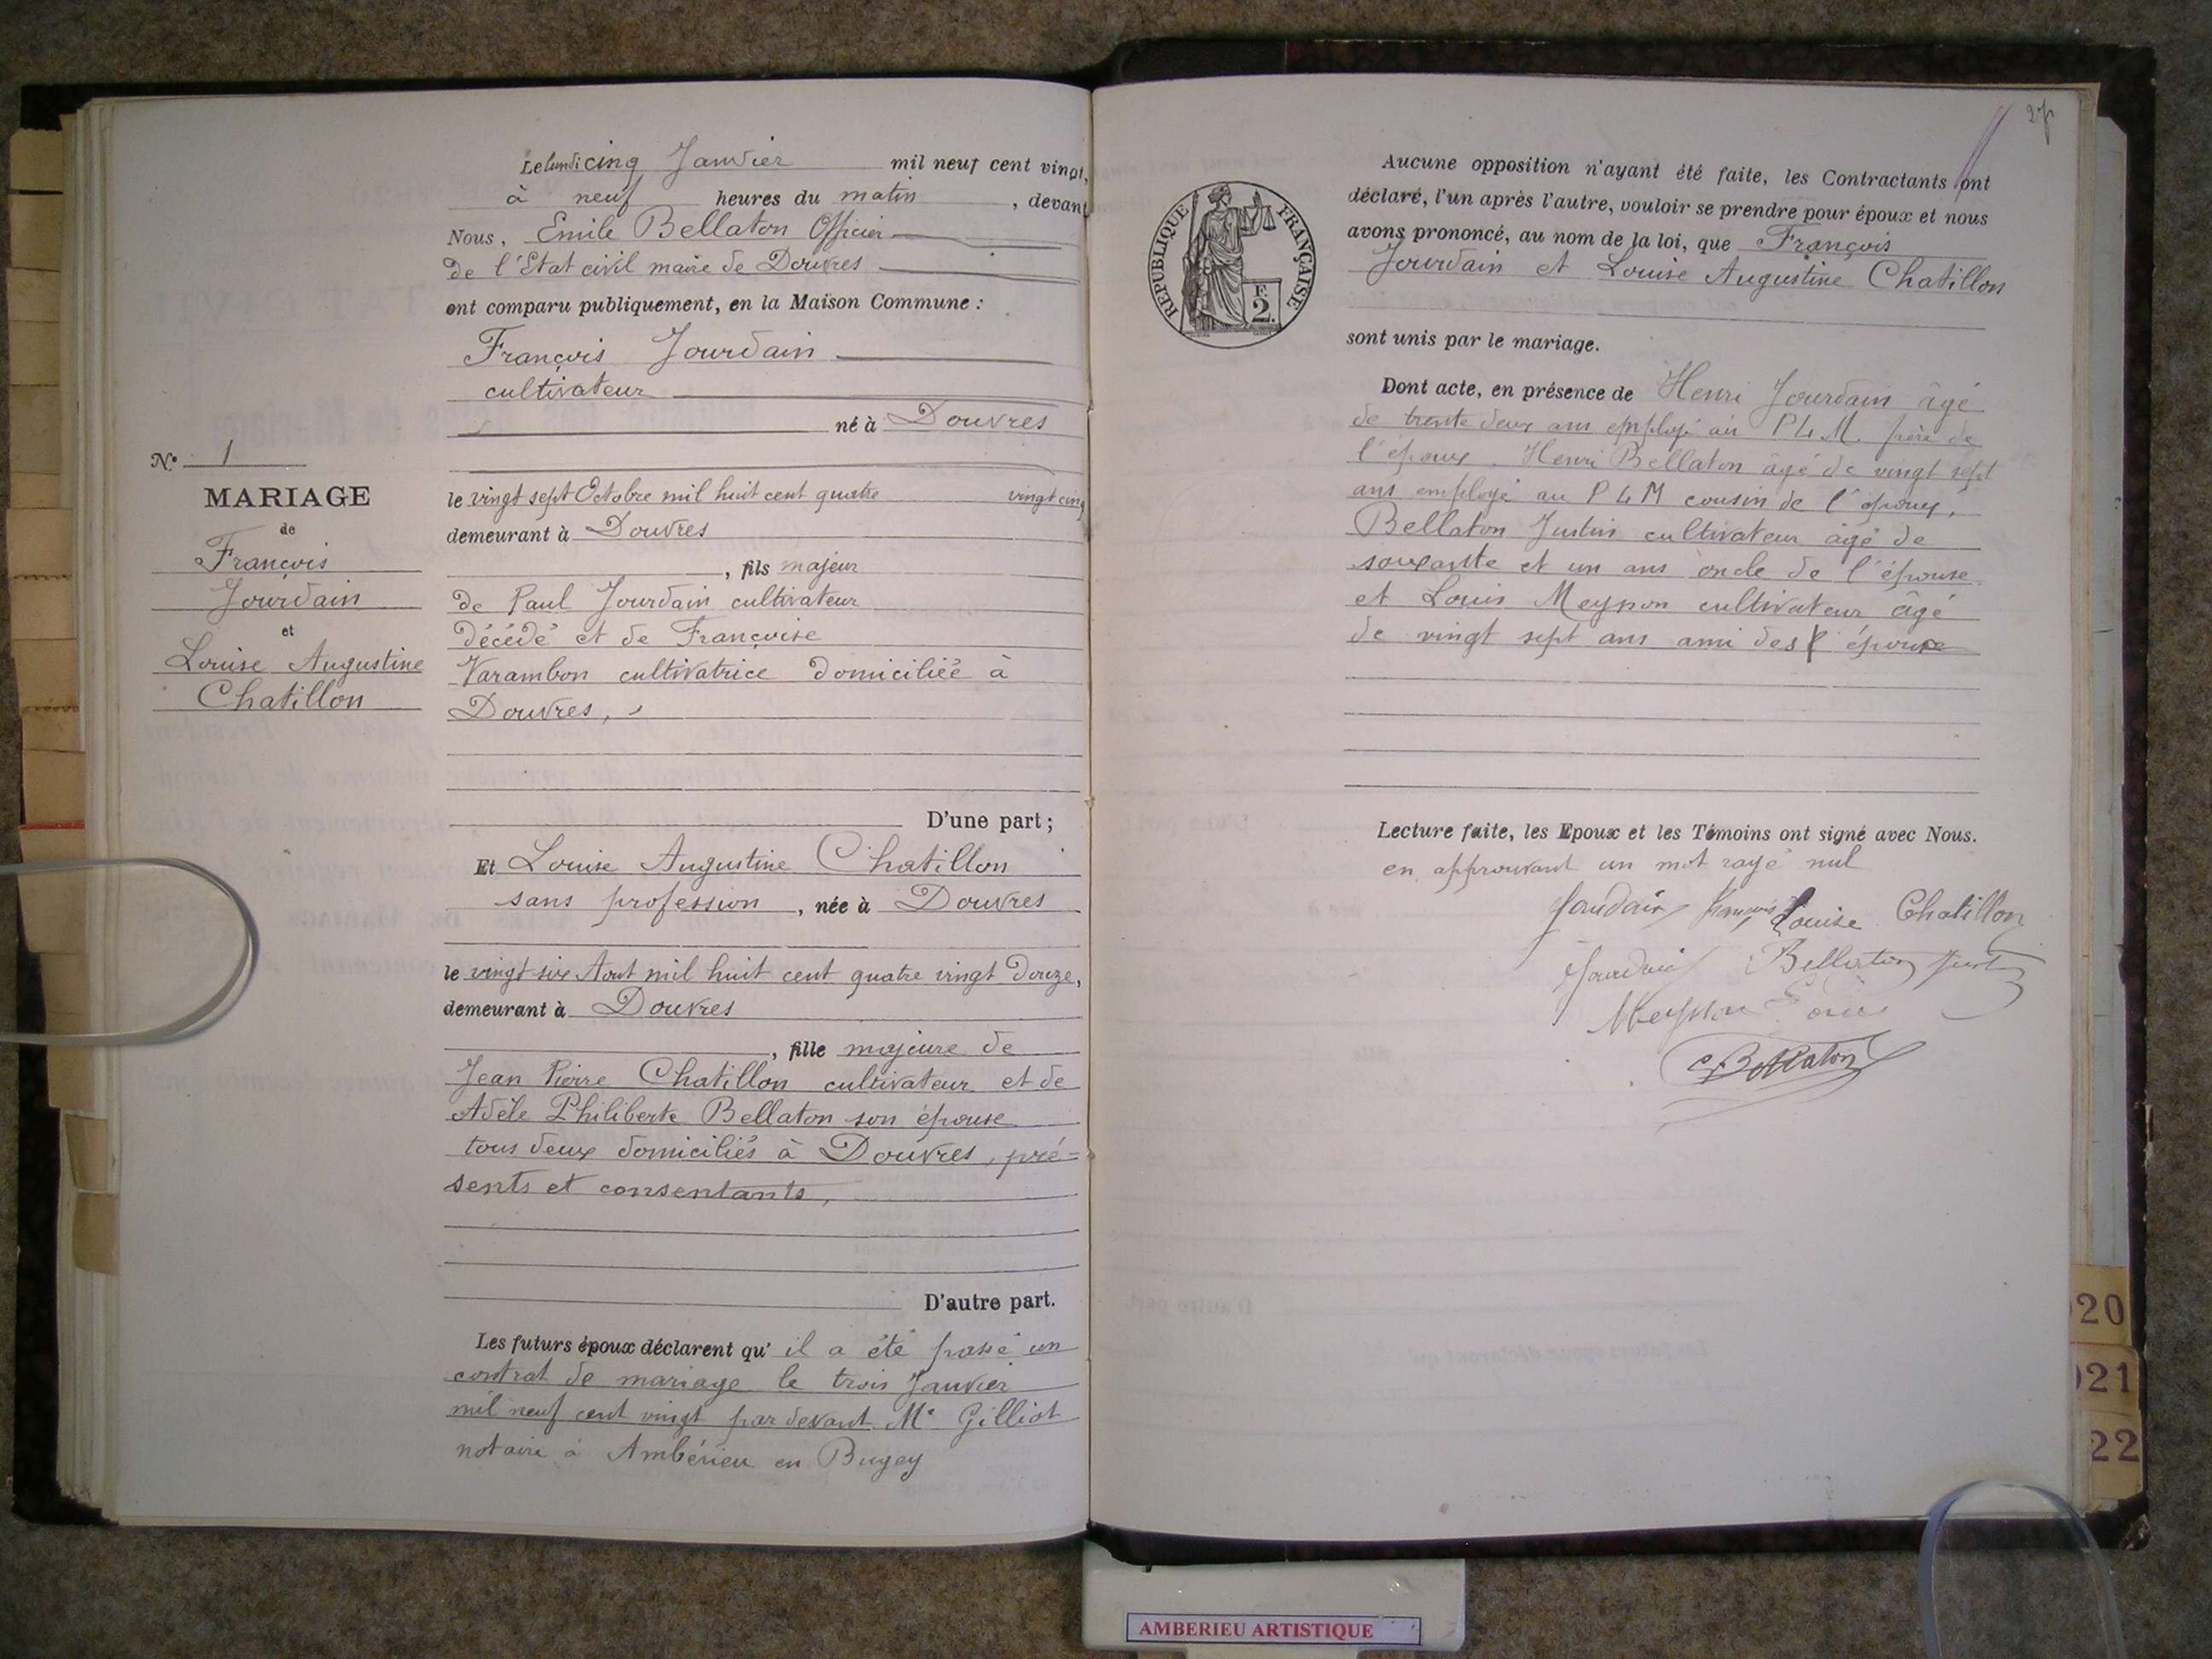 Le lundi cinq Janvier mil neuf cent vingt,
à neuf heures du matin, devant
Nous, Emile Bellaton Officier
de l'Etat civil maire de Douvres
ont comparu publiquement, en la Maison Commune :
François Jourdain
cultivateur
né à Douvres
le vingt sept Octobre mil huit cent quatre vingt cinq
demeurant à Douvres
, fils majeur
de Paul Jourdain cultivateur
décédé et de Françoise
Varambon cultivatrice domiciliée à
Douvres,
D'une part ;
Et Louise Augustine Chatillon
sans profession, née à Douvres
le vingt six Aout mil huit cent quatre vingt douze,
demeurant à Douvres
, fille majeure de
Jean Pierre Chatillon cultivateur et de
Adèle Philiberte Bellaton son épouse
tous deux domiciliés à Douvres, pré-
sents et consentants,
D'autre part.
Les futurs époux déclarent qu' il a été passé un
contrat de mariage le trois Janvier
mil neuf cent vingt par devant Me Gilliot
notaire à Ambérieu en Bugey
N° 1
MARIAGE
de
François
Jourdain
et
Louise Augustine
Chatillon
27
REPUBLIQUE FRANÇAISE
F.
2.
Aucune opposition n'ayant été faite, les Contractants ont
déclaré, l'un après l'autre, vouloir se prendre pour époux et nous
avons prononcé, au nom de la loi, que François
Jourdain et Louise Augustine Chatillon
sont unis par le mariage.
Dont acte, en présence de Henri Jourdain âgé
de trente deux ans employé au P L M. frère de
l'époux. Henri Bellaton âgé de vingt sept
ans employé au P L M cousin de l'époux,
Bellaton Justin cultivateur âgé de
soixante et un ans oncle de l'épouse
et Louis Meysson cultivateur âgé
de vingt sept ans ami des époux
Lecture faite, les Epoux et les Témoins ont signé avec Nous.
en approuvant un mot rayé nul
Jourdain François Louise Chatillon
Jourdain Bellaton Justin
Meysson Louis
E Bellaton
20
21
22
AMBERIEU ARTISTIQUE